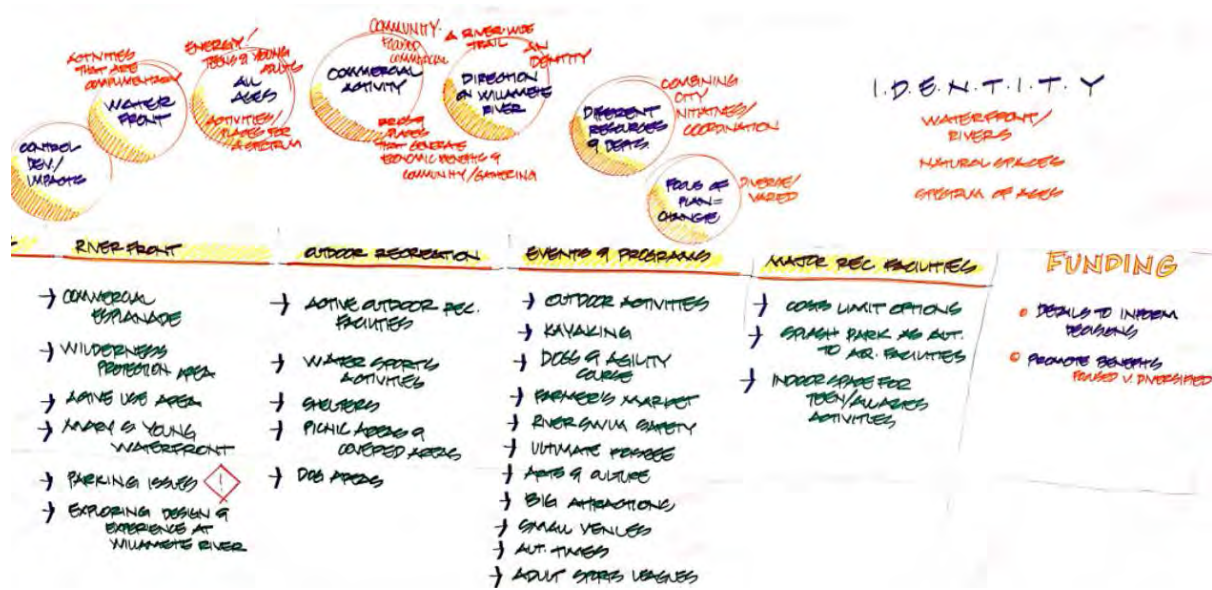 CONTROL
DEV./
IMPACTS
ACTIVITIES
THAT ARE
COMPLIMENTARY
WATER
FRONT
ENERGY/
TEENS & YOUNG
ADULTS
ALL
AGES
ACTIVITIES/
PLACES FOR
A SPECTRUM
COMMUNITY-
FOCUSED
COMMERCIAL
COMMERCIAL
ACTIVITY
PLACES
THAT GENERATE
ECONOMIC BENEFITS &
COMMUNITY/GATHERING
A RIVER-WIDE
TRAIL
AN
IDENTITY
DIRECTION
ON WILLAMETTE
RIVER
DIFFERENT
RESOURCES
& DEPTS.
COMBINING
CITY
INITIATIVES/
COORDINATION
FOCUS OF
PLAN =
CHANGE
DIVERSE/
VARIED
I.D.E.N.T.I.T.Y
WATERFRONT/
RIVERS
NATURAL SPACES
SPECTRUM OF AGES
RIVER FRONT
→ COMMERCIAL
ESPLANADE
→ WILDERNESS
PROTECTION AREA
→ ACTIVE USE AREA
→ MARY S YOUNG
WATERFRONT
→ PARKING ISSUES !
→ EXPLORING DESIGN &
EXPERIENCE AT
WILLAMETTE RIVER
OUTDOOR RECREATION
→ ACTIVE OUTDOOR REC.
FACILITIES
→ WATER SPORTS
ACTIVITIES
→ SHELTERS
→ PICNIC AREAS &
COVERED AREAS
→ DOG AREAS
EVENTS & PROGRAMS
→ OUTDOOR ACTIVITIES
→ KAYAKING
→ DOGS & AGILITY
COURSE
→ FARMER'S MARKET
→ RIVER SWIM SAFETY
→ ULTIMATE FRISBEE
→ ARTS & CULTURE
→ BIG ATTRACTIONS
→ SMALL VENUES
→ ALT. TIMES
→ ADULT SPORTS LEAGUES
MAJOR REC. FACILITIES
→ COSTS LIMIT OPTIONS
→ SPLASH PARK AS ALT.
TO AQ. FACILITIES
→ INDOOR SPACE FOR
TEEN/ALL AGES
ACTIVITIES
FUNDING
• DETAILS TO INFORM
DECISIONS
• PROMOTE BENEFITS
FOCUSED V. DIVERSIFIED